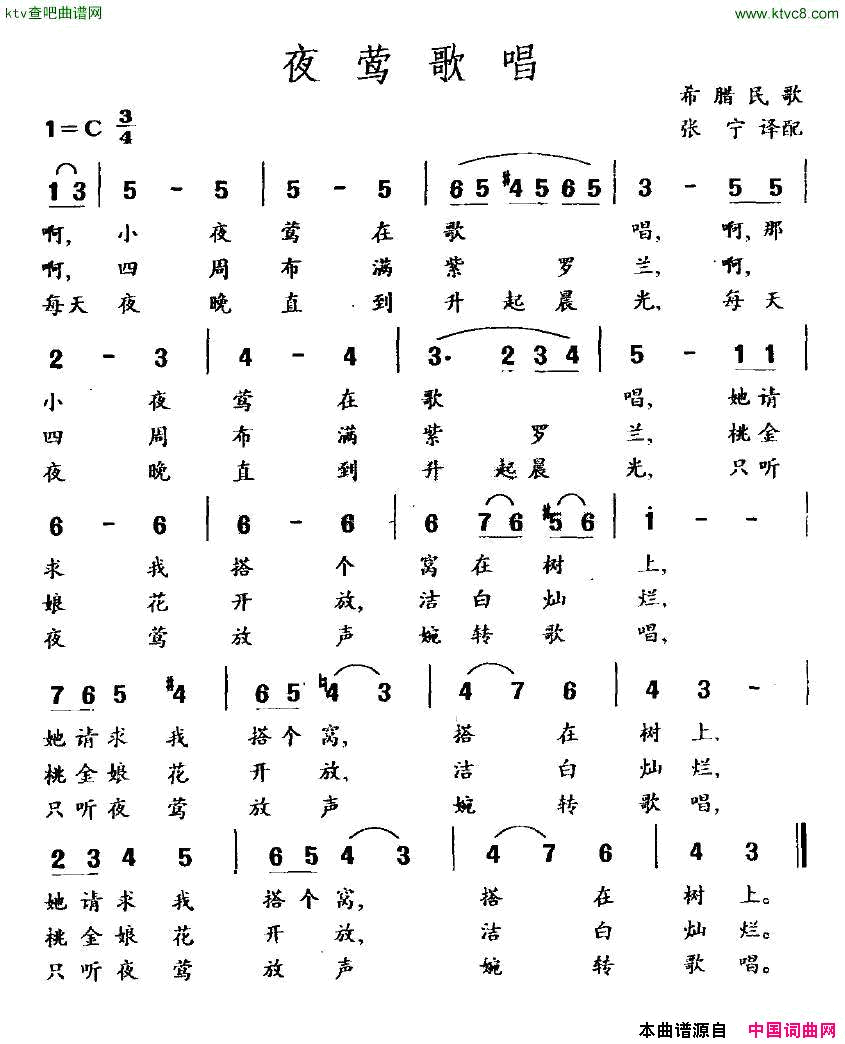 ktv查吧曲谱网
www.ktvc8.com
夜莺歌唱
希腊民歌
张宁译配
1=C 3/4
1 3 | 5 - 5 | 5 - 5 | 6 5 #4 5 6 5 | 3 - 5 5 |
啊, 小夜莺在歌唱, 啊, 那
啊, 四周布满紫罗兰, 啊,
每天夜晚直到升起晨光, 每天
2 - 3 | 4 - 4 | 3. 2 3 4 | 5 - 1 1 |
小夜莺在歌唱, 她请
四周布满紫罗兰, 桃金
夜晚直到升起晨光, 只听
6 - 6 | 6 - 6 | 6 7 6 #5 6 | i - - |
求我搭个窝在树上,
娘花开放, 洁白灿烂,
夜莺放声婉转歌唱,
7 6 5 #4 | 6 5 ♮4 3 | 4 7 6 | 4 3 - |
她请求我搭个窝, 搭在树上,
桃金娘花开放, 洁白灿烂,
只听夜莺放声婉转歌唱,
2 3 4 5 | 6 5 4 3 | 4 7 6 | 4 3 ‖
她请求我搭个窝, 搭在树上。
桃金娘花开放, 洁白灿烂。
只听夜莺放声婉转歌唱。
本曲谱源自 中国词曲网